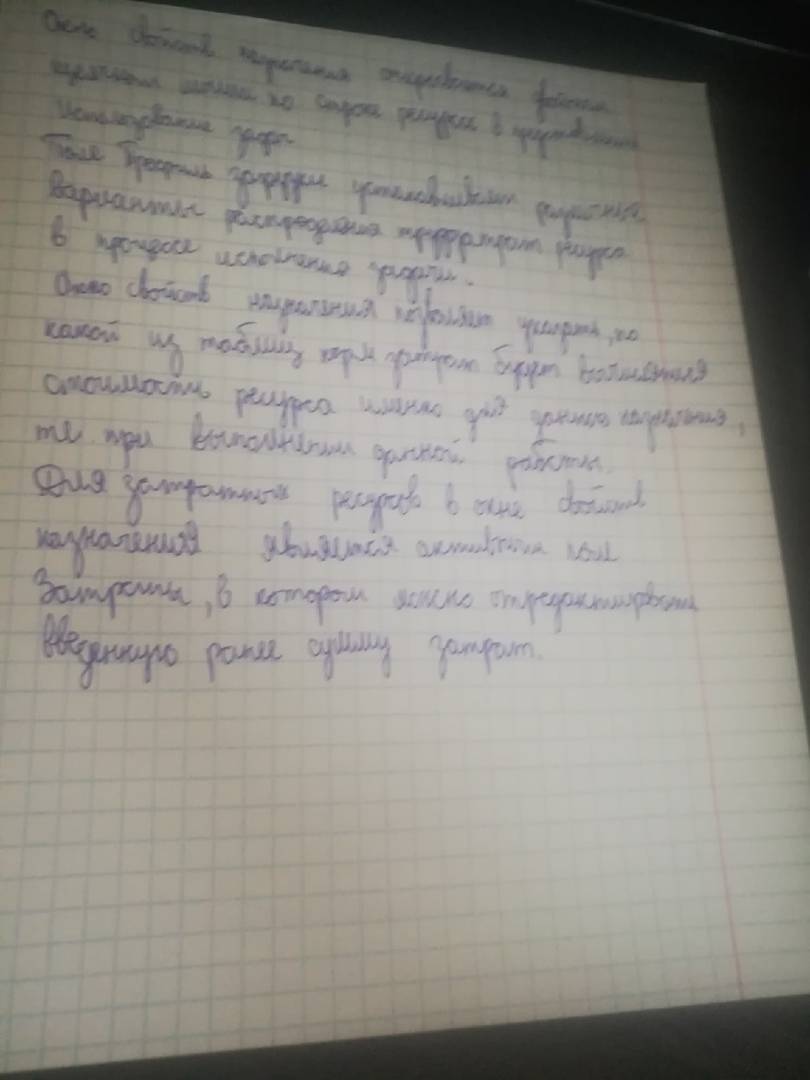 Окно свойств назначения открывается двойным
щелчком мыши по строке ресурса в представлении
Использование задач
Поле Профиль загрузки устанавливает различные
варианты распределения трудозатрат ресурса
в процессе исполнения задачи.
Окно свойств назначения позволяет указать, по
какой из таблиц норм затрат будет вычисляться
стоимость ресурса именно для данного назначения,
те. при выполнении данной работы.
Для затратных ресурсов в окне свойств
назначения является активным поле
Затраты, в котором можно отредактировать
введенную ранее сумму затрат.